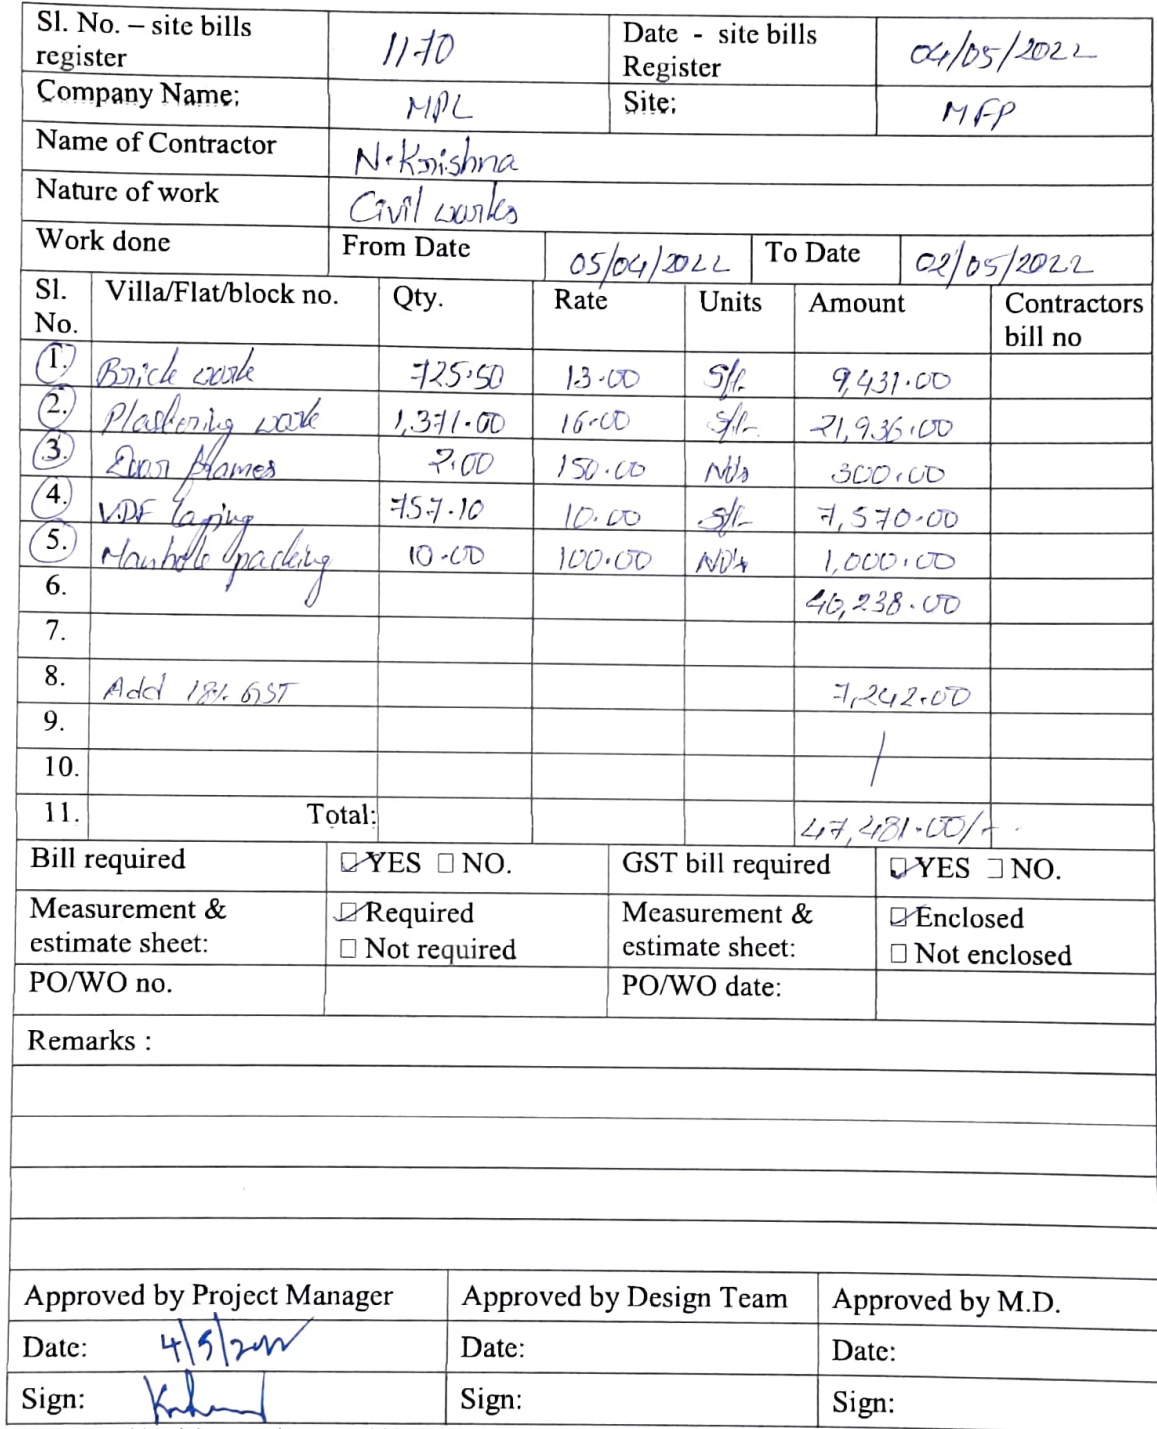 Sl. No. – site bills register 1170 Date - site bills Register 04/05/2022
Company Name: MPL Site: MFP
Name of Contractor N.Krishna
Nature of work Civil works
Work done From Date 05/04/2022 To Date 02/05/2022
Sl. No. Villa/Flat/block no. Qty. Rate Units Amount Contractors bill no
1. Brick work 725.50 13.00 Sft. 9,431.00
2. Plastering work 1,371.00 16.00 Sft. 21,936.00
3. Door frames 2.00 150.00 No's 300.00
4. VDF laying 757.10 10.00 Sft. 7,570.00
5. Manhole packing 10.00 100.00 No's 1,000.00
6. 40,238.00
7.
8. Add 18% GST 7,242.00
9.
10.
11. Total: 47,481.00/-
Bill required YES NO. GST bill required YES NO.
Measurement & estimate sheet: Required Not required Measurement & estimate sheet: Enclosed Not enclosed
PO/WO no. PO/WO date:
Remarks :
Approved by Project Manager Approved by Design Team Approved by M.D.
Date: 4/5/2022 Date: Date:
Sign: Sign: Sign: